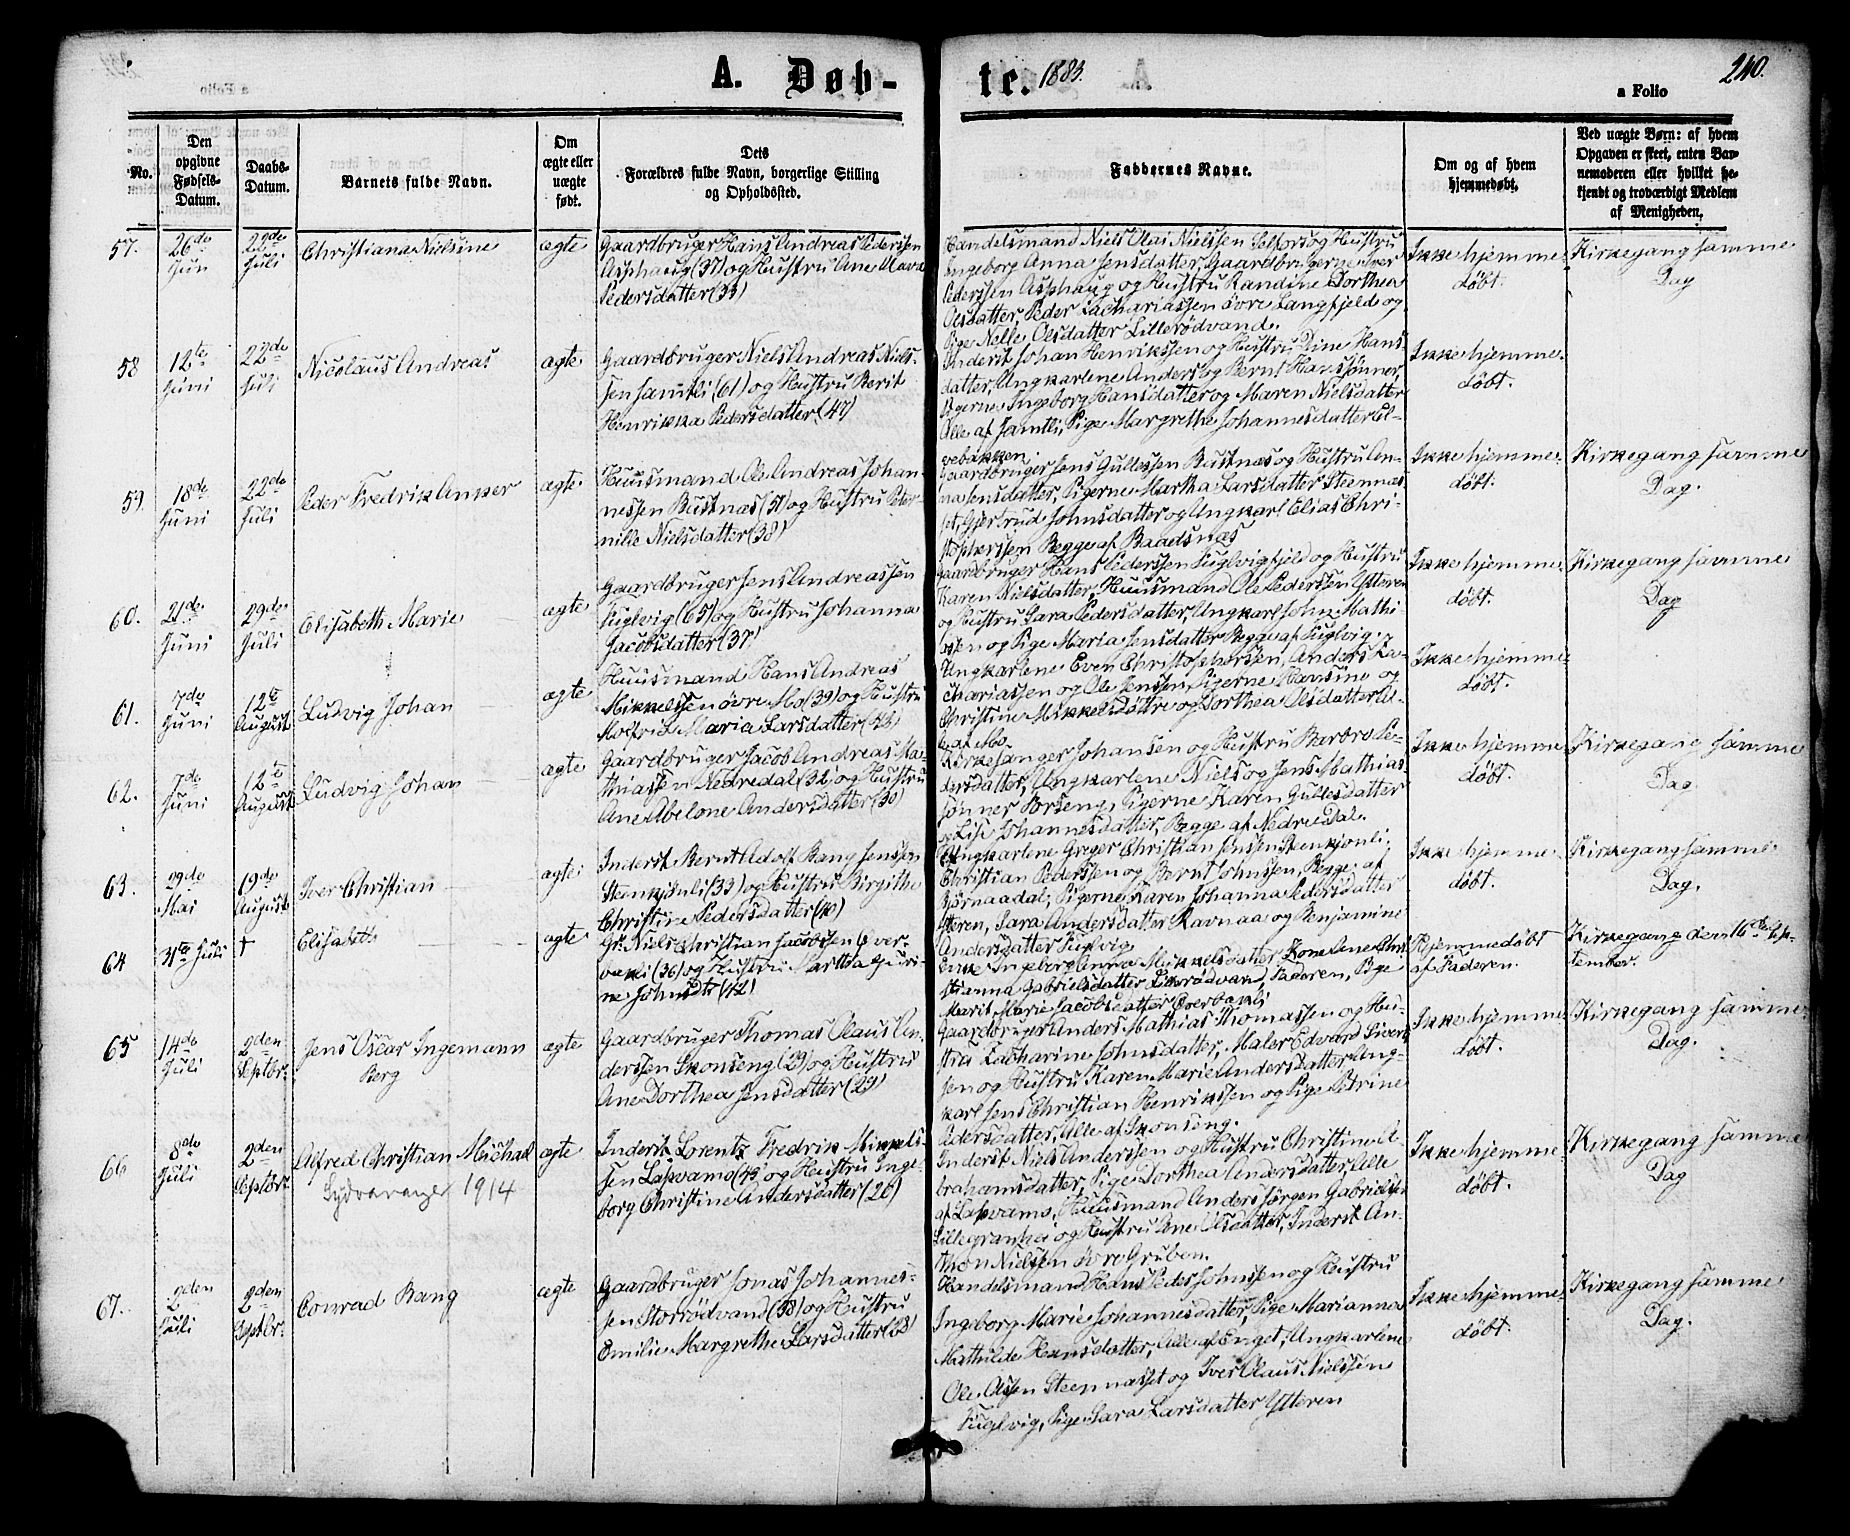 A. Døb-
te. 1883.
240.
a Folio
No.
Den opgivne Fødsels-Datum.
Daabs-Datum.
Barnets fulde Navn.
Om ægte eller uægte født.
Dets
Forældres fulde Navn, borgerlige Stilling
og Opholdssted.
Faddernes Navne.
Om og af hvem
hjemmedøbt.
Ved uægte Børn: af hvem
Opgaven er skeet, enten Bar-
nemoderen eller hvilket be-
kjendt og troværdigt Medlem
af Menigheden.
57. 26de Juni
22de Juli
Christiana Nielsine
ægte
Gaardbruger Hans Andreas Pedersen
Asphaug (37) og Hustru Ane Mara
Pedersdatter (33)
Handelsmand Niels Olai Nielssen Selfors og Hustru
Ingeborg Anna Jensdatter, Gaardbrugerne Iver
Pederssen Asphaug og Hustru Randine Dorthea
Olsdatter, Peder Zachariassen øvre Langfjeld og
Pige Nelle Olsdatter Lillerødvand.
Ikke hjemme
døbt.
Kirkegang samme
Dag
58 12te Juni
22de Juli
Nicolaus Andreas
ægte
Gaardbruger Niels Andreas Niels-
sen Jamtli (61) og Hustru Berit
Henrikka Pedersdatter (47)
Inderst Johan Henrikssen og Hustru Dine Hans-
datter, Ungkarlene Anders og Bernt Hanssønner,
Pigerne Ingeborg Hansdatter og Maren Nielsdatter
Alle af Jamtli, Pige Margrethe Johannesdatter El-
vebakken.
Ikke hjemme-
døbt.
59. 18de Juni
22de Juli
Peder Fredrik Anker
ægte
Huusmand Ole Andreas Johan-
nessen Bustnæs (51) og Hustru Peter-
nille Nielsdatter (38)
Gaardbruger Jens Gullessen Bustnæs og Hustru An-
na Jensdatter, Pigerne Martha Larsdatter Steennæs-
set, Gjertrud Johnsdatter og Ungkarl Elias Chri-
stophersen Begge af Baadsnæs
Ikke hjemme-
døbt.
Kirkegang samme
Dag.
60. 21de Juni
29de Juli
Elisabeth Marie
ægte
Gaardbruger Jens Andreassen
Fuglvig (65) og Hustru Johanna
Jacobsdatter (37)
Gaardbruger Hans Pederssen Fuglvigfjeld og Hustru
Karen Nielsdatter, Huusmand Ole Pederssen Ytteren
og Hustru Sara Pedersdatter, Ungkarl John Mathi-
assen og Pige Maria Jensdatter Begge af Fuglvig.
Ikke hjemme
døbt.
Kirkegang samme
Dag
61. 7de Juni
12te August
Ludvig Johan
ægte
Huusmand Hans Andreas
Mikkelssen øvre Mo (39) og Hustru
Maria Larsdatter (43)
Ungkarlene Even Christophersen, Anders Za-
chariassen og Ole Jenssen, Pigerne Hansine og
Christine Mikkelsdøttre og Dorthea Olsdatter Al-
le af Mo.
Ikke hjemme-
døbt.
62. 7de Juni
12te August
Ludvig Johan
ægte
Gaardbruger Jacob Andreas Ma-
thiassen Nedredal (32) og Hustru
Ane Abelone Andersdatter (30)
Kirkesanger Johansen og Hustru Barbro Pe-
dersdatter, Ungkarlene Niels og Jens Mathias-
sønner Forseng, Pigerne Karen Gullesdatter
og Lise Johannesdatter, Begge af Nedredal.
Ikke hjemme
døbt.
Kirkegang samme
Dag.
63. 29de Mai
19de August
Iver Christian
ægte
Inderst Bernt Adolf Bang Jenssen
Stenkjønli (33) og Hustru Birgithe
Christine Pedersdatter (40)
Ungkarlene Greger Christian Jenssen Stenkjønli,
Christian Pederssen og Bernt Johnssen, Begge af
Bjørnaadal, Pigerne Karen Johanna Pedersdatter
Yteren, Sara Andersdatter Ravnaa og Benjamine
Andersdatter Fuglvig
Ikke hjemme-
døbt.
Kirkegang samme
Dag.
64 31te Juli
†
Elisabeth
ægte
Gr. Niels Christian Jacobssen Over-
(36) og Hustru Martha Guri-
ne Johnsdtr (42)
Enke Ingeborg Anna Mikkelsdatter Kone Ane Chri-
stianna Gabrielsdatter Lillerødvand, Faderen, Pige
Marit Marie Jacobsdatter
Hjemmedøbt
af Faderen.
Kirkegang den 16de Sep-
tember.
65 14de Juli
2den Septbr.
Jens Oscar Ingemann
Berg
ægte
Gaardbruger Thomas Olaus An-
derssen Skonseng (29) og Hustru
Ane Dorthea Jensdatter (29)
Gaardbruger Anders Mathias Thomassen og Hu-
stru Zacharine Johnsdatter, Maler Edvard Sivert-
sen og Hustru Karen Marie Andersdatter, Ung-
karl Jens Christian Henrikssen og Pige Petrine
Pedersdatter, Alle af Skonseng.
Ikke hjemme
døbt.
Kirkegang samme
Dag.
66 8de Juli
2den Septbr.
Alfred Christian Michael
Sydvaranger 1914
ægte
Inderst Lorentz Fredrik Mikkels-
sen Lapvamo (43) og Hustru Inge-
borg Christine Andersdatter (26)
Inderst Niels Anderssen og Hustru Christine A-
brahamsdatter, Pige Dorthea Andersdatter, Alle
af Lapvamo, Huusmand Anders Jørgen Gabrielssen
Lillegranhei og Hustru Ane Olsdatter, Inderst An-
thon Nielsen øvre Gruben.
Ikke hjemme-
døbt.
Kirkegang samme
Dag
67. 2den Juli
2den Septbr.
Conrad Bang
ægte
Gaardbruger Jonas Johannes-
sen Storrødvand (38) og Hustru
Emilie Margrethe Larsdatter (38)
Handelsmand Hans Peder Johnssen og Hustru
Ingeborg Marie Johannesdatter, Pige Marianne
Mathilde Hansdatter, Alle af Enget, Ungkarlene
Ole Olsen Steennæsset og Iver Olaus Nielssen
Fuglvig, Pige Sara Larsdatter Ytteren
Ikke hjemme-
døbt.
Kirkegang samme
Dag.